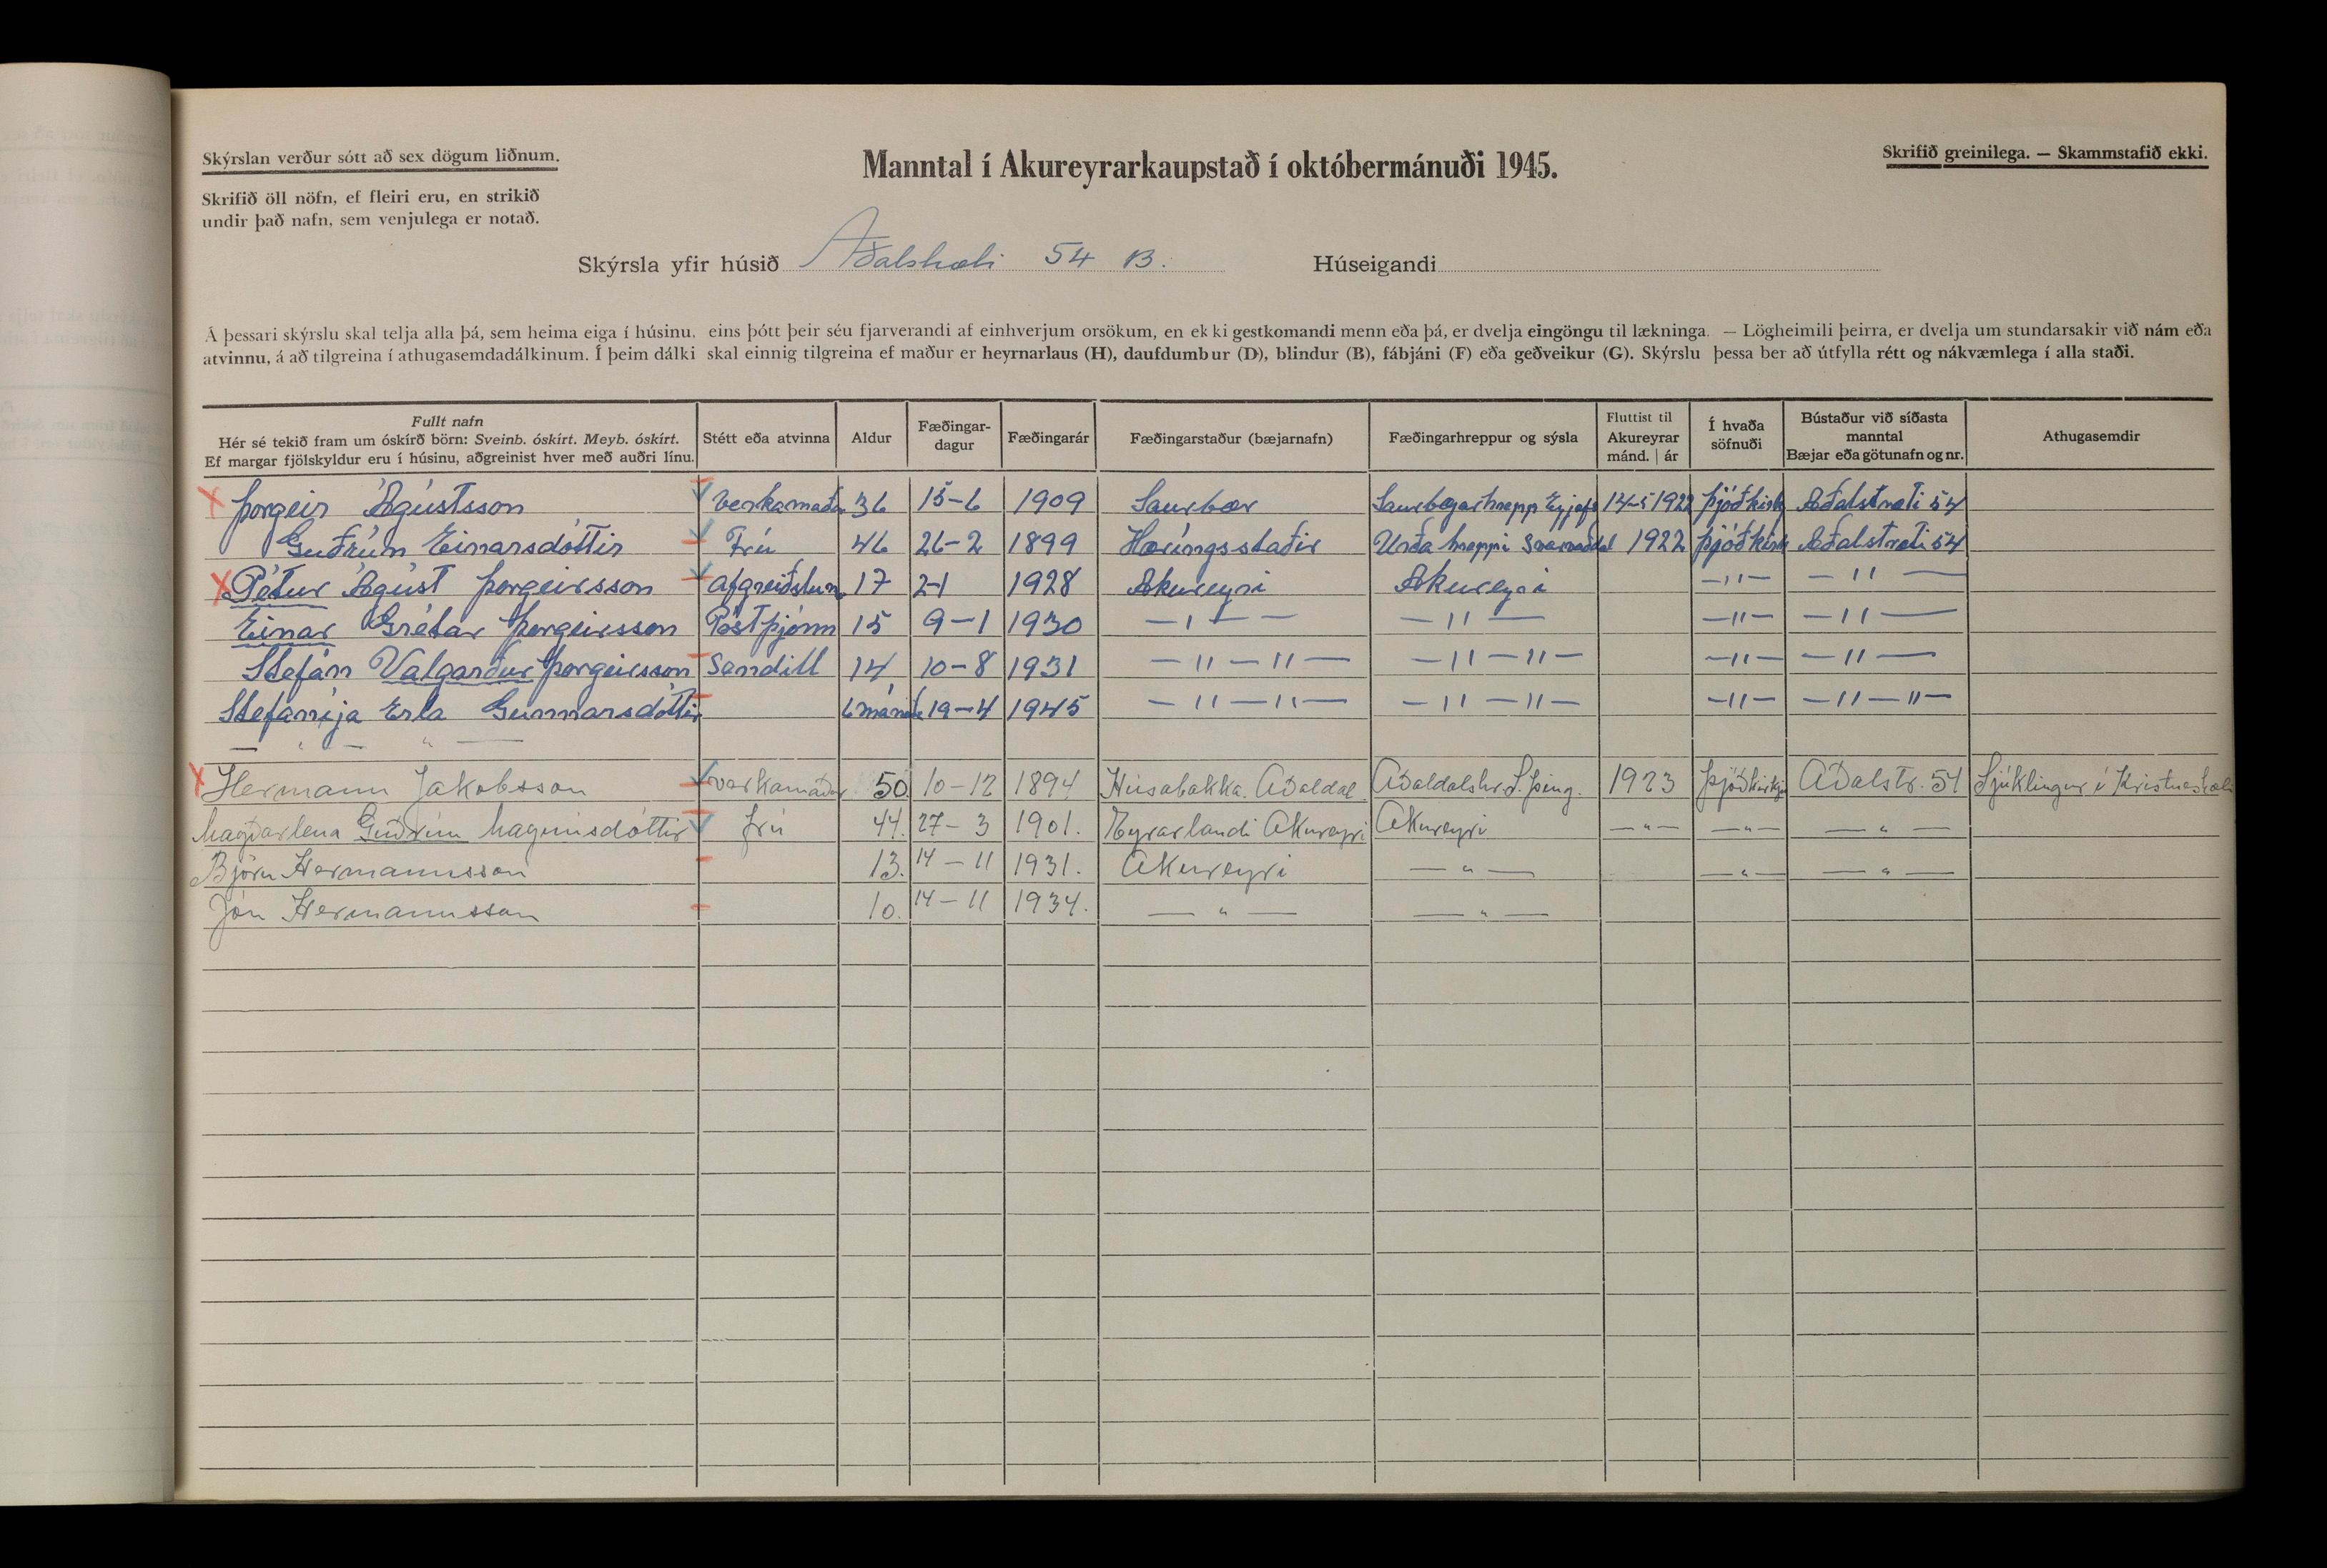 Skýrslan verður sótt að sex dögum liðnum.
Skrifið öll nöfn, ef fleiri eru, en strikið
undir það nafn, sem venjulega er notað.
Manntal í Akureyrarkaupstað í októbermánuði 1945.
Skrifið greinilega. — Skammstafið ekki.
Skýrsla yfir húsið Aðalstræti 54 B. Húseigandi
Á þessari skýrslu skal telja alla þá, sem heima eiga í húsinu, eins þótt þeir séu fjarverandi af einhverjum orsökum, en ekki gestkomandi menn eða þá, er dvelja eingöngu til lækninga. — Lögheimili þeirra, er dvelja um stundarsakir við nám eða
atvinnu, á að tilgreina í athugasemdadálkinum. Í þeim dálki skal einnig tilgreina ef maður er heyrnarlaus (H), daufdumbur (D), blindur (B), fábjáni (F) eða geðveikur (G). Skýrslu þessa ber að útfylla rétt og nákvæmlega í alla staði.
Fullt nafn
Hér sé tekið fram um óskírð börn: Sveinb. óskírt. Meyb. óskírt.
Ef margar fjölskyldur eru í húsinu, aðgreinist hver með auðri línu.
Stétt eða atvinna
Aldur
Fæðingar-
dagur
Fæðingarár
Fæðingarstaður (bæjarnafn)
Fæðingarhreppur og sýsla
Fluttist til
Akureyrar
mánd. | ár
Í hvaða
söfnuði
Bústaður við síðasta
manntal
Bæjar eða götunafn og nr.
Athugasemdir
Þorgeir Ágústsson verkamaður 36 15-6 1909 Saurbær Saurbæjarhrepp Eyjafs 14-5 1922 Þjóðkirk Aðalstræti 54
Guðrún Einarsdóttir Frú 46 26-2 1899 Hæringsstaðir Urða hreppi Svarvaðdal 1922 Þjóðkirk Aðalstræti 54
Pétur Ágúst Þorgeirsson afgreiðslum 17 2-1 1928 Akureyri Akureyri —"— —"—
Einar Grétar Þorgeirsson Póstþjónn 15 9-1 1930 —"— —"— —"— —"—
Stefán Valgarður Þorgeirsson Sendill 14 10-8 1931 —"—"— —"—"— —"— —"—
Stefanija Erla Gunnarsdóttir 6 mánaða 19-4 1945 —"—"— —"—"— —"— —"—"—
— " — " —
Hermann Jakobsson verkamaður 50 10-12 1894 Húsabakka Aðaldal Aðaldalshr. S. Þing. 1923 Þjóðkirkju Aðalstr. 54 Sjúklingur í Kristneshæli
Magðarlena Guðrún Magnúsdóttir frú 44. 27-3 1901. Eyrarlandi Akureyri Akureyri —"— —"— —"—
Björn Hermannsson 13. 14-11 1931. Akureyri —"— —"— —"—
Jón Hermannsson 10. 14-11 1934. —"— —"—